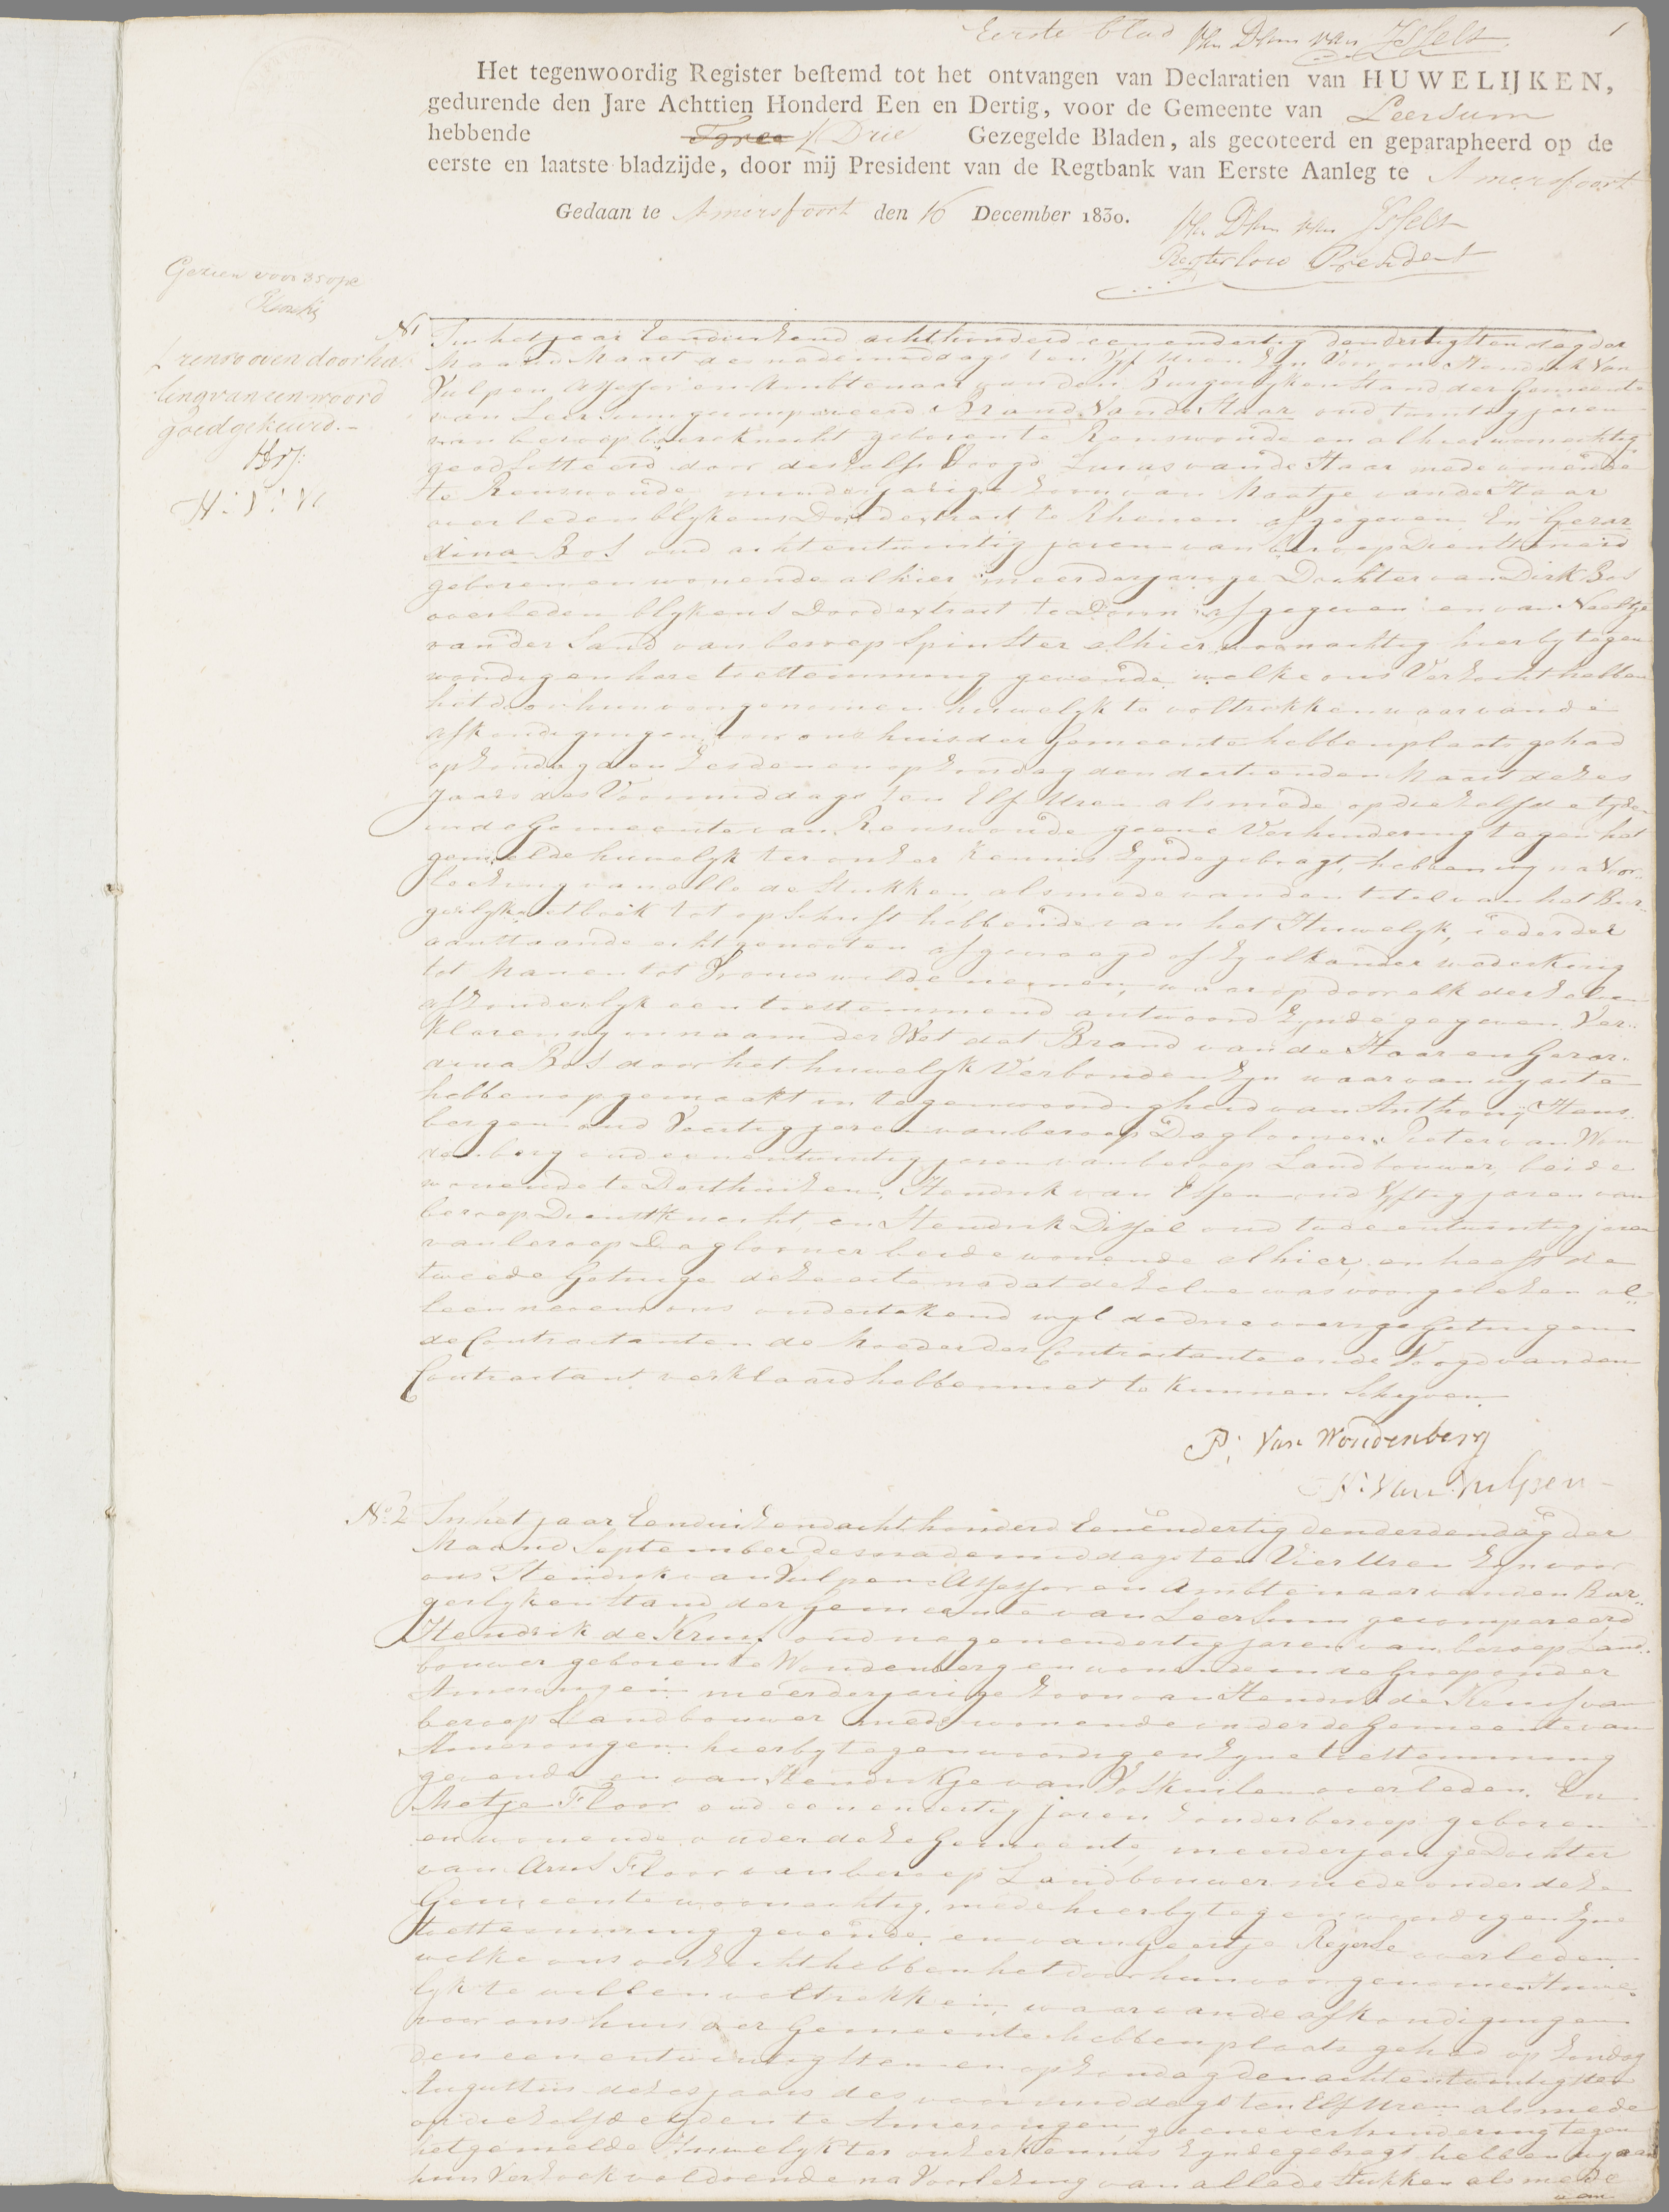 Eerste blad
1
Het tegenwoordig Register bestemd tot het ontvangen van Declaratien van HUWELIJKEN,
gedurende den Jare Achttien Honderd Een en Dertig, voor de Gemeente van Leersum
hebbende Drie Gezegelde Bladen, als gecoteerd en geparapheerd op de
eerste en laatste bladzijde, door mij President van de Regtbank van Eerste Aanleg te Amersfoort
Gedaan te Amersfoort den 16 December 1830.
President
Gezien voor
renvooven doorha
ling van een woord
goedgekeurd.-
H: V: V:
N 1
In het jaar Eenduizend achthonderd eenendertig den dertigsten dag der
Maand Maart des nademiddags ten vyf Uren Zyn Voor ons Hendrik Van
Vulpen Assessor en Ambtenaar van den Burgerlyken Stand der Gemeente
van Leersum gecompareerd Brand Van de Haar oud twintig jaren
van beroep bouwknecht geboren te Renswoude en alhier woonachtig
geadsisteerd door deszelfs Voogd Lucas van de Haar mede wonende
te Renswoude, minderjarige Zoon van Maatje van de Haar
overleden blykens Doodextract te Rhenen afgegeven En Gerar
dina Bos oud achtentwintig jaren van beroep Dienstmeid
geboren en wonende alhier meerderjarige Dochter van Dirk Bos
overleden blykens Doodextract te Doorn afgegeven en van Neeltje
van der Sand van beroep Spinster alhier woonachtig hierby tegen
woordig en hare toestemming gevende welke ons Verzocht hebben
het door hun voorgenomen huwelyk te voltrekken waarvan de
afkondigingen voor ons huis der Gemeente hebben plaats gehad
op Zondag den Zesden en op Zondag den dertienden Maart dezes
Jaars des Voormiddags ten Elf Uren alsmede op diezelfde tyden
in de Gemeente van Renswoude geene Verhindering tegen het
gemelde huwelyk ter onzer kennis Zynde gebragt, hebben wy na Voor
lezing van alle de Stukken, alsmede van den titel van het Bur
gerlyk wetboek tot opschrift hebbende van het Huwelyk, ieder der
aanstaande echtgenooten afgevraagd of Zy elkander wederkeerig
tot Man en tot Vrouw wilde nemen, waarop door elk derzelve
afzonderlyk een toestemmend antwoord Zynde gegeven Ver
klaren wy in naam der Wet dat Brand van de Haar en Gerar
dina Bos door het huwelyk Verbonden Zyn waarvan wy acte
hebben opgemaakt in tegenwoordigheid van Anthony Hens
bergen oud Veertig jaren van beroep Daglooner, Pieter van Wou
denberg oud eenentwintig jaren van beroep Landbouwer, beide
wonende te Darthuizen, Hendrik van Elsen oud Vyftig jaren van
beroep Dienstknecht en Hendrik Dissel oud tweeentwintig jaren
van beroep Daglooner beide wonende alhier, en heeft de
tweede Getuige deze acte nadat dezelve was voorgelezen al
leen nevens ons onderteekend wyl de drie overige Getuigen
de Contractanten de Moeder der Contractante en de Voogd van den
Contractant verklaard hebben niet te kunnen Schryven
P: Van Woudenberg
H: Van Vulpen
No 2
In het jaar Eenduizendachthonderd Eenendertig den derden dag der
Maand September des nademiddags ten Vier Uren Zyn voor
ons Hendrik van Vulpen Assessor en Ambtenaar van den Bur
gerlyken Stand der Gemeente van Leersum gecompareerd
Hendrik de Kruif oud negenendertig jaren van beroep Land
bouwer geboren te Woudenberg en wonende in de Groep onder
Amerongen meerderjarige Zoon van Hendrik de Kruif van
beroep Landbouwer mede wonende onder de Gemeente van
Amerongen hierby tegenwoordig en Zyne toestemming
gevende en van Hendrikje van Valkuilen overleden. En
Metje Floor oud eenendertig jaren Zonder beroep geboren
en wonende onder deze Gemeente meerderjarige Dochter
van Arris Floor van beroep Landbouwer mede onder deze
Gemeente woonachtig, mede hierby tegenwoordig en Zyne
toestemming gevende, en van Geertje Reyerse overleden
welke ons verzocht hebben het door hun voorgenomen Huwe
lyk te willen voltrekken, waarvan de afkondigingen
voor ons huis der Gemeente hebben plaats gehad op Zondag
den eenentwintigsten en op Zondag den achtentwintigsten
Augustus dezes jaars des voormiddags ten Elf Uren alsmede
op diezelfde tyden te Amerongen, geene verhindering tegen
het gemelde Huwelyk ter onzer kennis Zynde gebragt hebben wy aan
hun Verzoek voldoende na Voorlezing van alle de Stukken alsmede
van